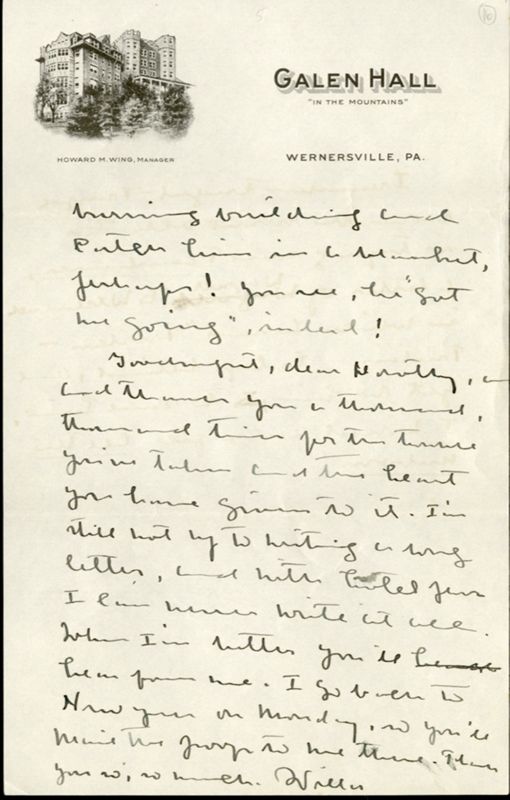 10
GALEN HALL
"IN THE MOUNTAINS"
HOWARD M. WING, MANAGER
WERNERSVILLE, PA.
burning building and
catch him in a blanket,
perhaps! You see, he "got
me going", indeed!
Goodnight, dear Dorothy,
and thank you a thousand,
thousand times for the trouble
you've taken and the heart
you have given to it. I'm
still not up to writing a long
letter, and with hotel pens
I can never write at all.
When I'm better you'll
hear from me. I go back to
New York on Monday, so you'll
mail the proofs to me there. Thank
you so, so much. Willa